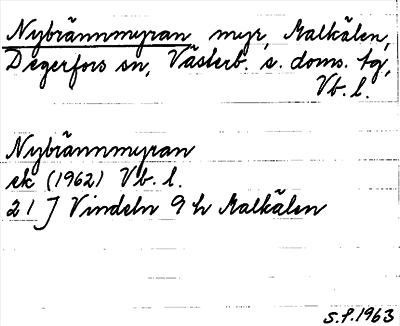 Nybrännmyran myr, Malkälen,
Degerfors sn, Västerb. s. doms. tg,
Vb. l.
Nybrännmyran
ek (1962) Vb. l.
21 J Vindeln 9 h Malkälen
S.P. 1963